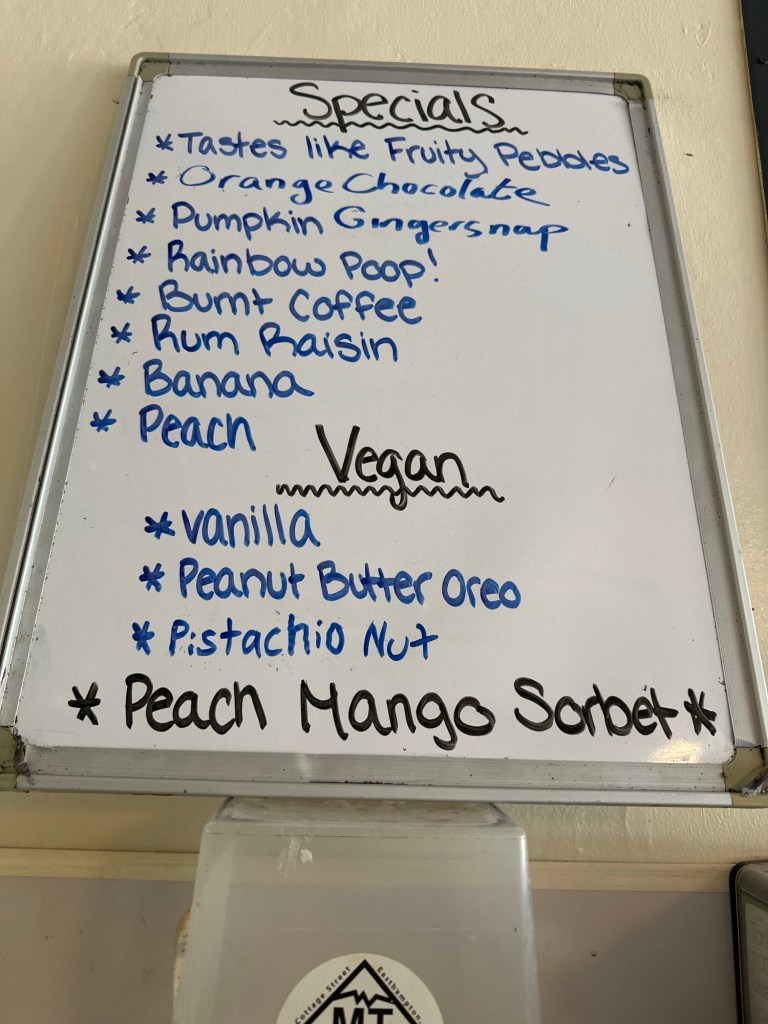 Specials
*Tastes like Fruity Pebbles
* Orange Chocolate
* Pumpkin Gingersnap
* Rainbow Poop!
* Burnt Coffee
* Rum Raisin
* Banana
* Peach
Vegan
*vanilla
* Peanut Butter Oreo
* Pistachio Nut
* Peach Mango Sorbet *
Cottage Street Easthampton
MT